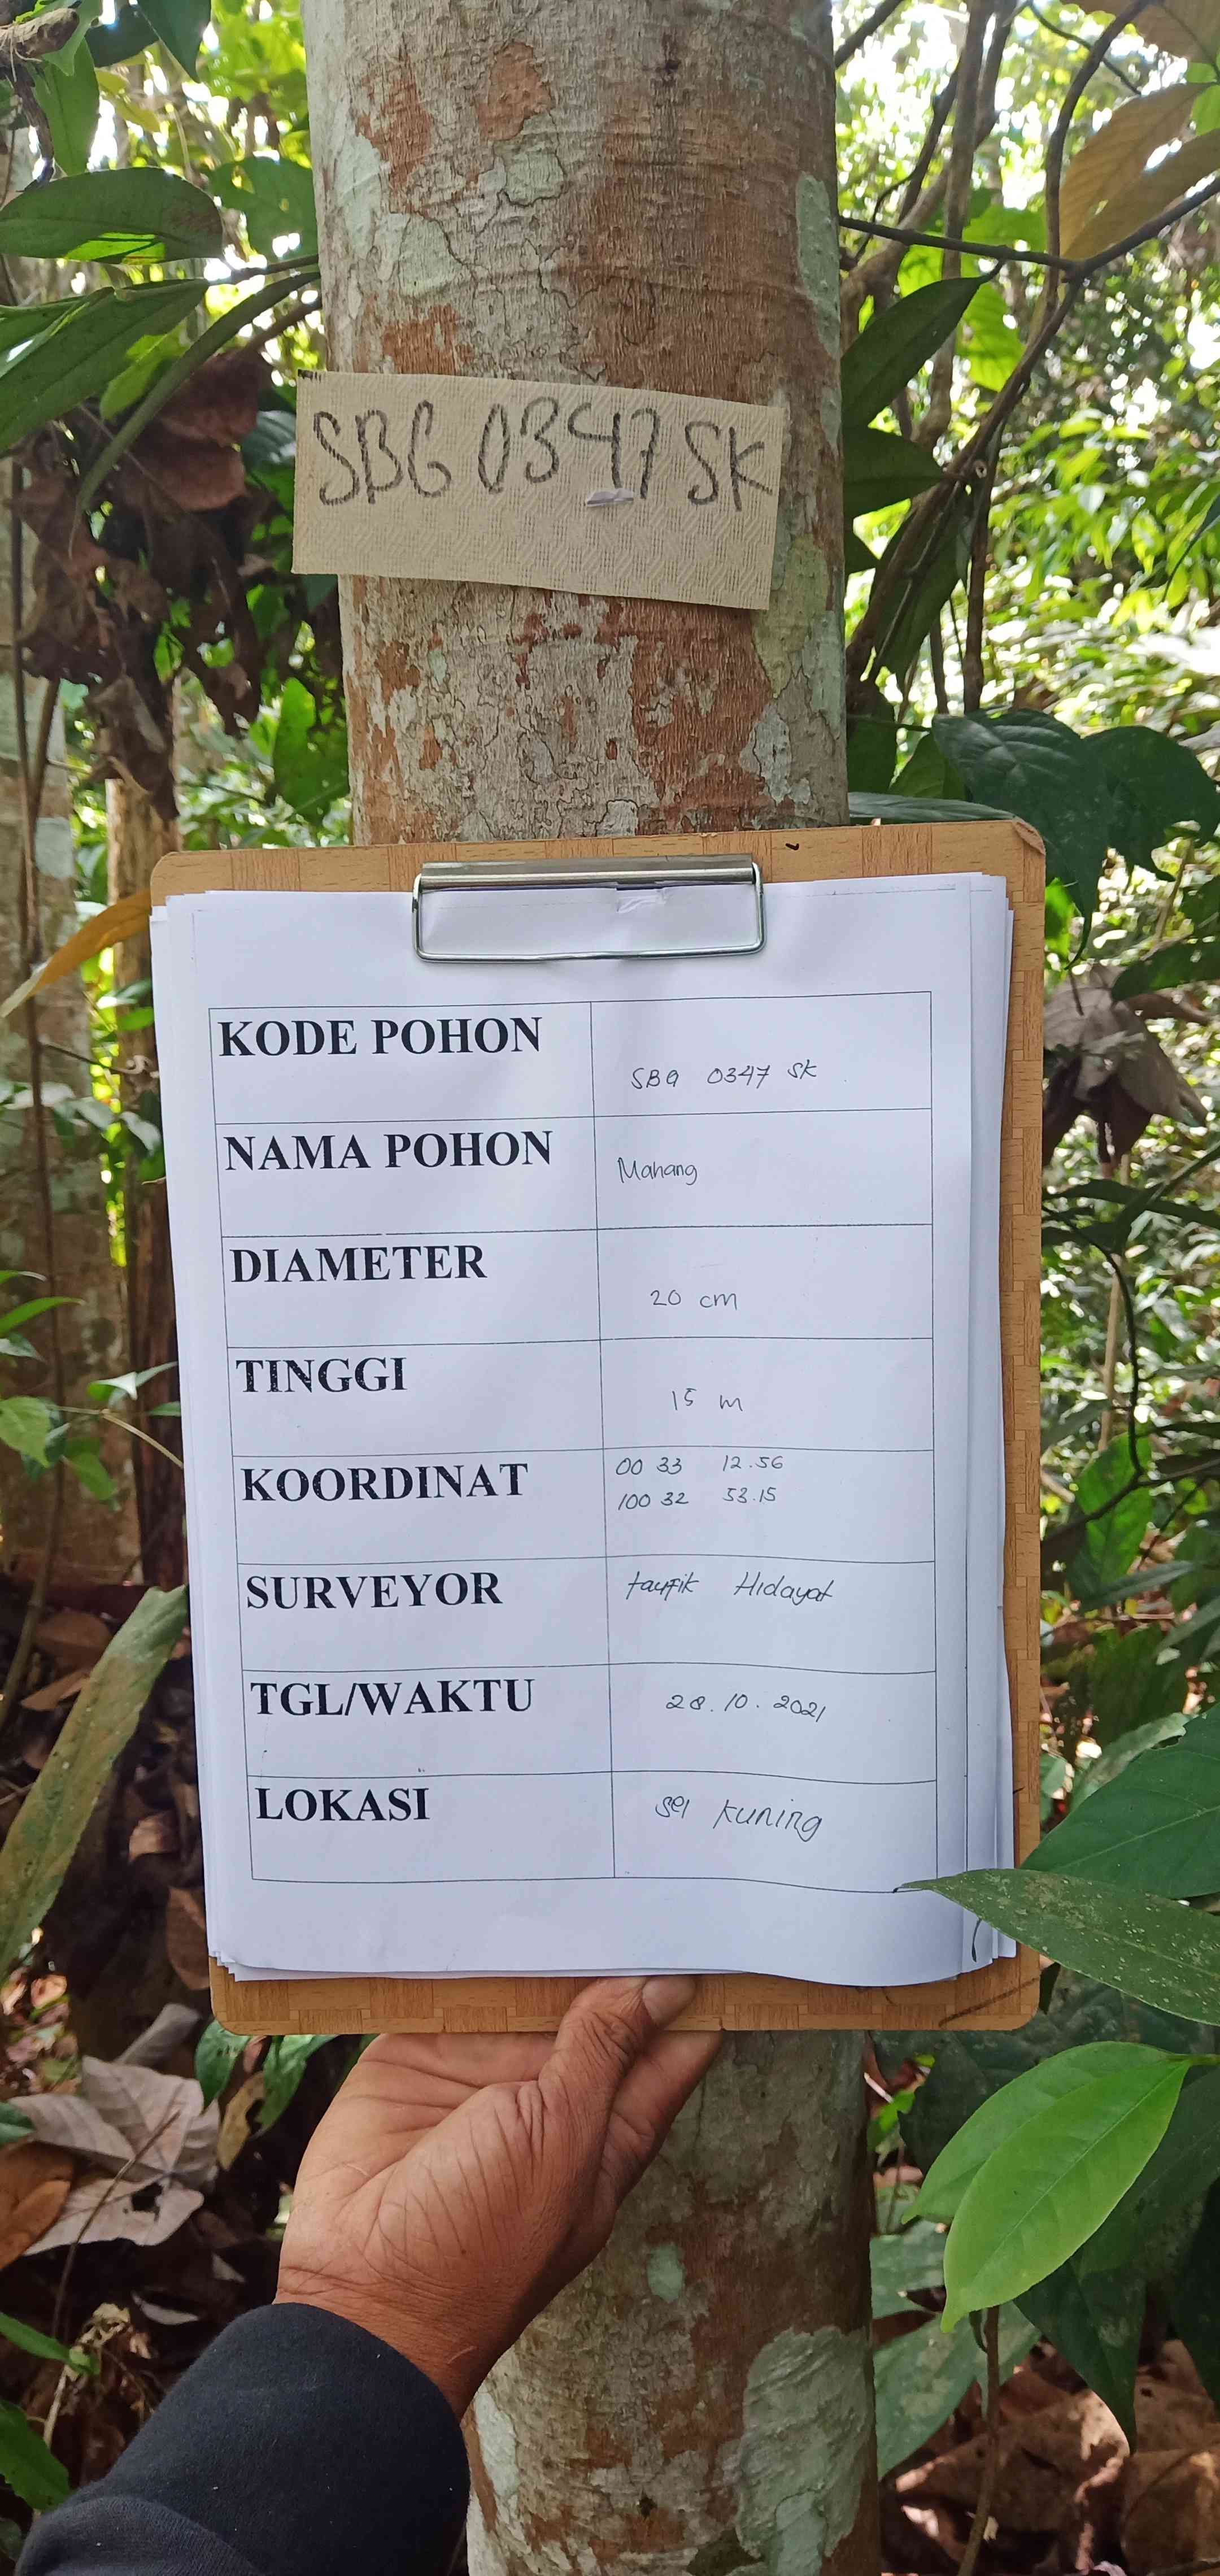 SBG 0347 SK
KODE POHON
SBG 0347 SK
NAMA POHON
Mahang
DIAMETER
20 cm
TINGGI
15 m
KOORDINAT
00 33 12.56
100 32 53.15
SURVEYOR
taufik Hidayat
TGL/WAKTU
28.10.2021
LOKASI
sei kuning